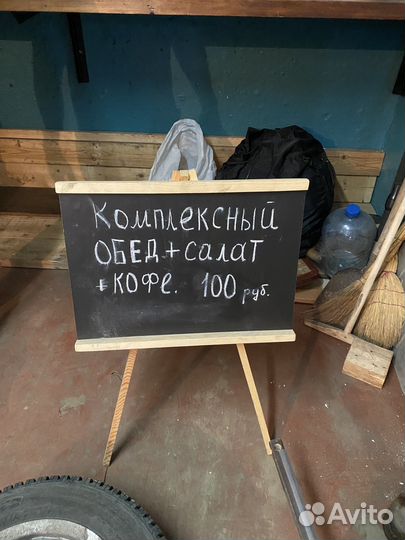 Комплексный
ОБЕД + салат
+ кофе. 100 руб.
Avito